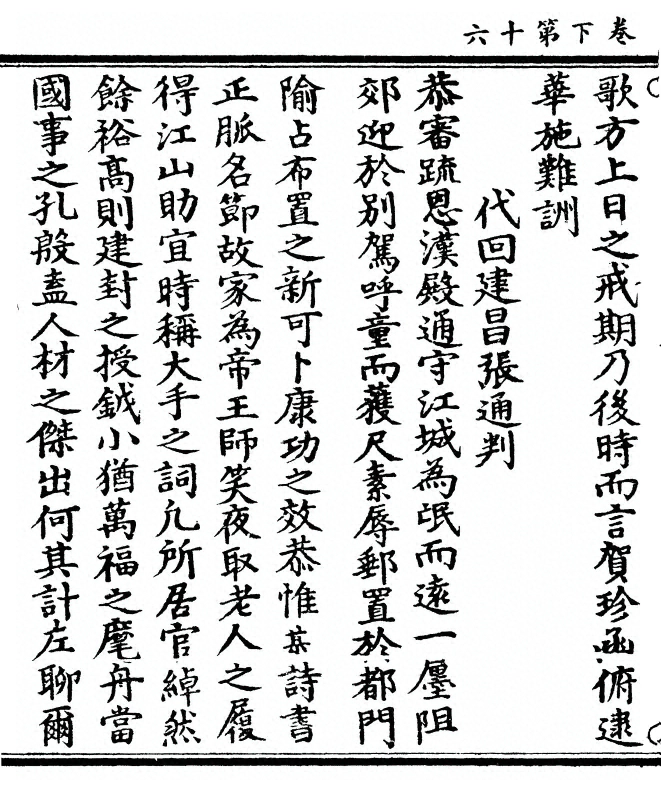 卷下第十六
歌方上日之戒期乃後時而言賀珍函俯逮
華施難詶
代回建昌張通判
恭審疏恩漢殿通守江城為氓而遠一廛阻
郊迎於别駕呼童而獲尺素辱郵置於都門
隃占布置之新可卜康功之效恭惟某詩書
正脈名節故家為帝王師笑夜取老人之履
得江山助宜時稱大手之詞凢所居官綽然
餘裕髙則建封之授鉞小猶萬福之麾舟當
國事之孔殷盍人材之傑出何其計左聊爾